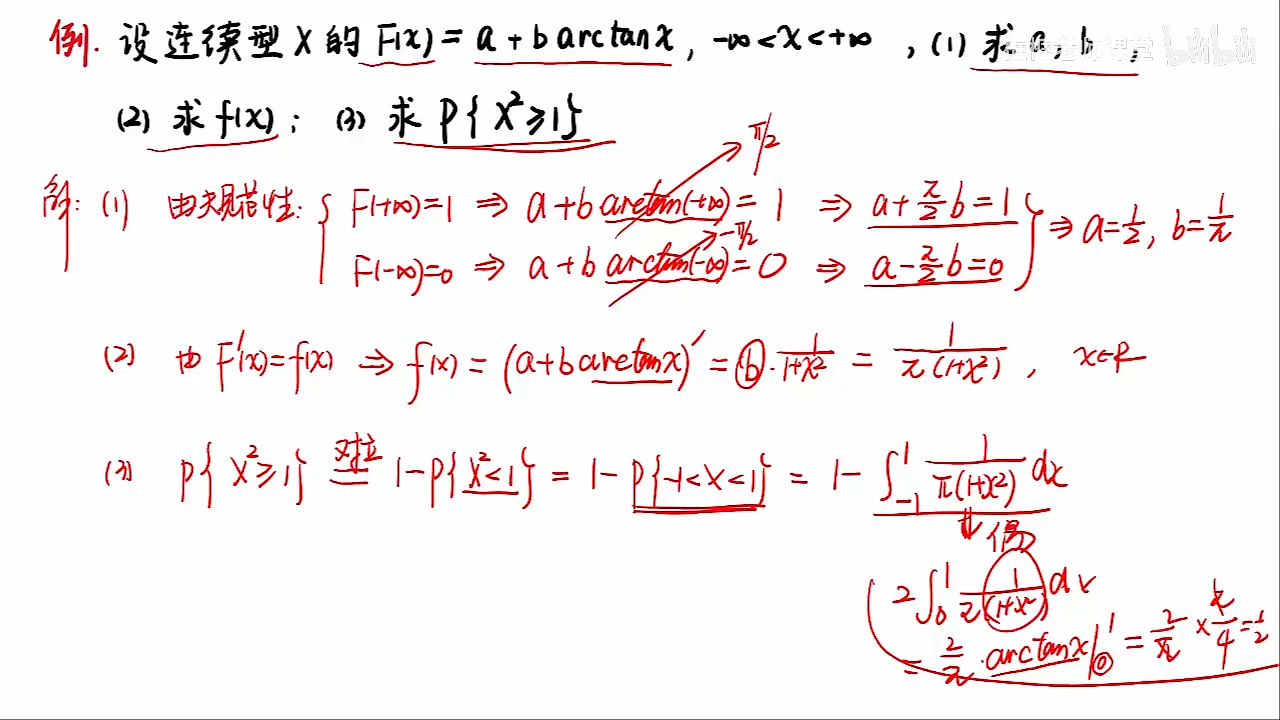 例. 设连续型 X 的 F(x) = a + b arctanx, -∞<x<+∞, (1) 求 a, b;
(2) 求 f(x); (3) 求 P{X²≥1}
π/2
解: (1) 由规范性: { F(+∞)=1 ⇒ a+b arctan(+∞) = 1 ⇒ a+π/2 b=1 } ⇒ a=1/2, b=1/π
-π/2
F(-∞)=0 ⇒ a+b arctan(-∞) = 0 ⇒ a-π/2 b=0
(2) 由 F'(x)=f(x) ⇒ f(x) = (a+b arctanx)' = b·1/(1+x²) = 1/(π(1+x²)), x∈R
(3) P{X²≥1} 对立= 1-P{X²<1} = 1-P{-1<X<1} = 1-∫₋₁¹ 1/(π(1+x²)) dx
偶
2∫₀¹ 1/(π(1+x²)) dx
= 2/π · arctanx|₀¹ = 2/π × π/4 = 1/2
bilibili